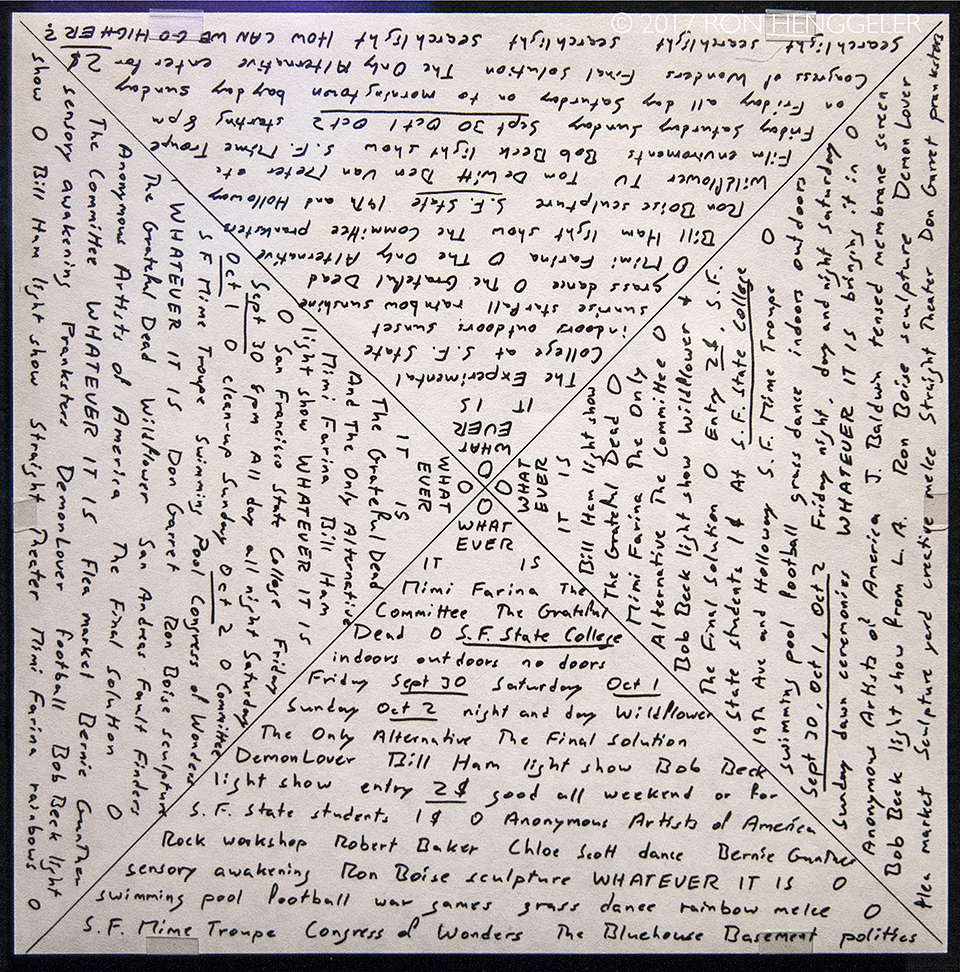 © 2017 RON HENGGELER
WHAT
EVER
IT IS
Mimi Farina The
Committee The Grateful
Dead O S.F. State College
indoors outdoors no doors
Friday Sept 30 Saturday Oct 1
Sunday Oct 2 night and day Wildflower
The Only Alternative The Final Solution
DemonLover Bill Ham light show Bob Beck
light show entry 2$ good all weekend or for
S.F. State students 1$ O Anonymous Artists of America
Rock workshop Robert Baker Chloe Scott dance Bernie Gunther
sensory awakening Ron Boise sculpture WHATEVER IT IS O
swimming pool football war games grass dance rainbow melee O
S.F. Mime Troupe Congress of Wonders The Bluehouse Basement politics
WHAT
EVER
IT IS
The Grateful Dead
And The Only Alternative
Mimi Farina Bill Ham
light show WHATEVER IT IS
O San Francisco State College Friday
Sept 30 6pm All day all night Saturday
Oct 1 O clean-up Sunday Oct 2 O Committee
S F Mime Troupe Swimming Pool Congress of Wonders
WHATEVER IT IS Don Garret Ron Boise sculpture
The Grateful Dead Wildflower San Andreas Fault Finders
Anonymous Artists of America The Final Solution O
The Committee WHATEVER IT IS Flea market Bernie Gunther
sensory awakening Pranksters DemonLover football Bob Beck light
show O Bill Ham light show Straight Theater Mimi Farina rainbows O
WHAT
EVER
IT IS
The Experimental
College at S.F. State
indoors outdoors sunset
sunrise starfall rainbow sunshine
grass dance O The Grateful Dead
O Mimi Farina O The Only Alternative
Bill Ham light show The Committee pranksters
Ron Boise sculpture S.F. State 19th and Holloway
Wildflower TV Tom DeWitt Ben Van Meter etc
Film enviroments Bob Beck light show S.F. Mime Troupe
Friday Saturday Sunday Sept 30 Oct 1 Oct 2 starting 8 pm
on Friday all day Saturday on to morningtown bay day sunday
Congress of Wonders Final Solution The Only Alternative enter for 2$
searchlight searchlight searchlight searchlight HOW CAN WE GO HIGHER?
WHAT
EVER
IT IS
Bill Ham light show
The Grateful Dead O
Mimi Farina The Only
Alternative The Committee O
Bob Beck light show Wildflower +
The Final Solution O Entry 2$, S.F.
State students 1$ At S.F. State College
19th Ave and Holloway S.F. Mime Troupe O
swimming pool football grass dance indoors outdoors
Sept 30, Oct 1, Oct 2 Friday night, day and night saturday O
Sunday dawn ceremonies WHATEVER IT IS bringing it in O
Anonymous Artists of America J. Baldwin tensed membrane screen
Bob Beck light show from L.A. Ron Boise sculpture Demon Lover
flea market sculpture yard creative melee Straight Theater Don Garret pranksters